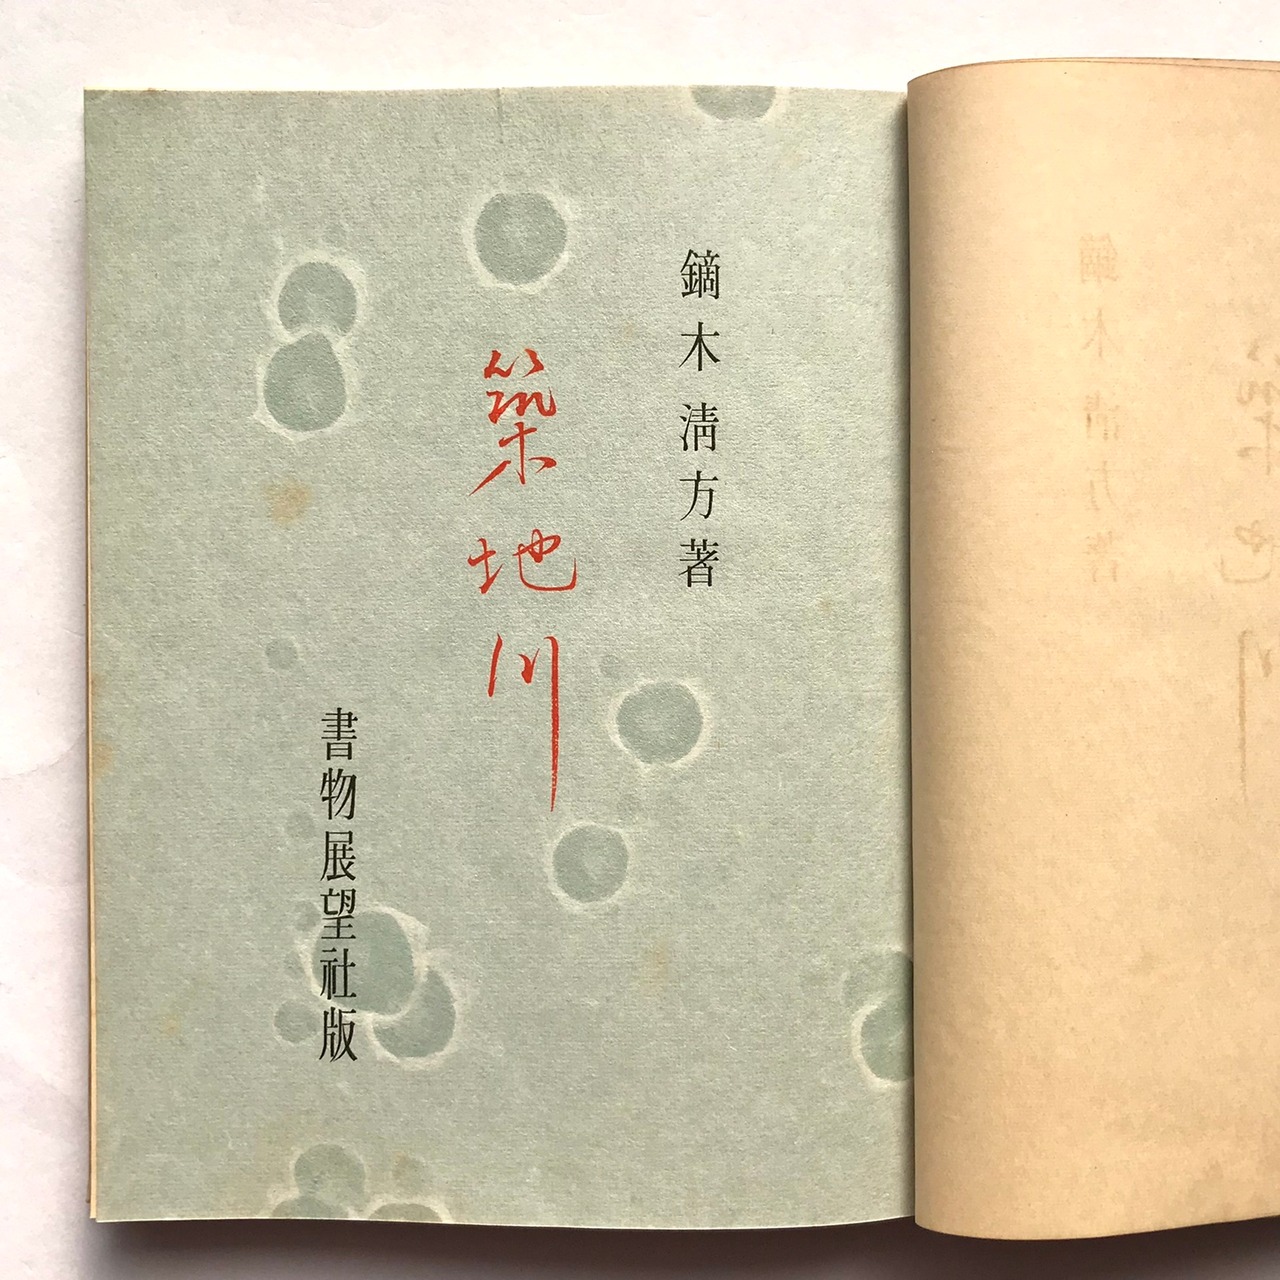 鏑木淸方著
築地川
書物展望社版